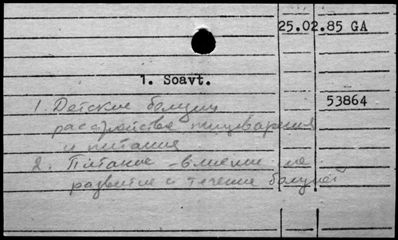 25.02.85 GA
1. Soavt.
53864
1. Детские болезни
расстройства пищеварения
и питания
2. Питание - влияние на
развитие и течение болезней